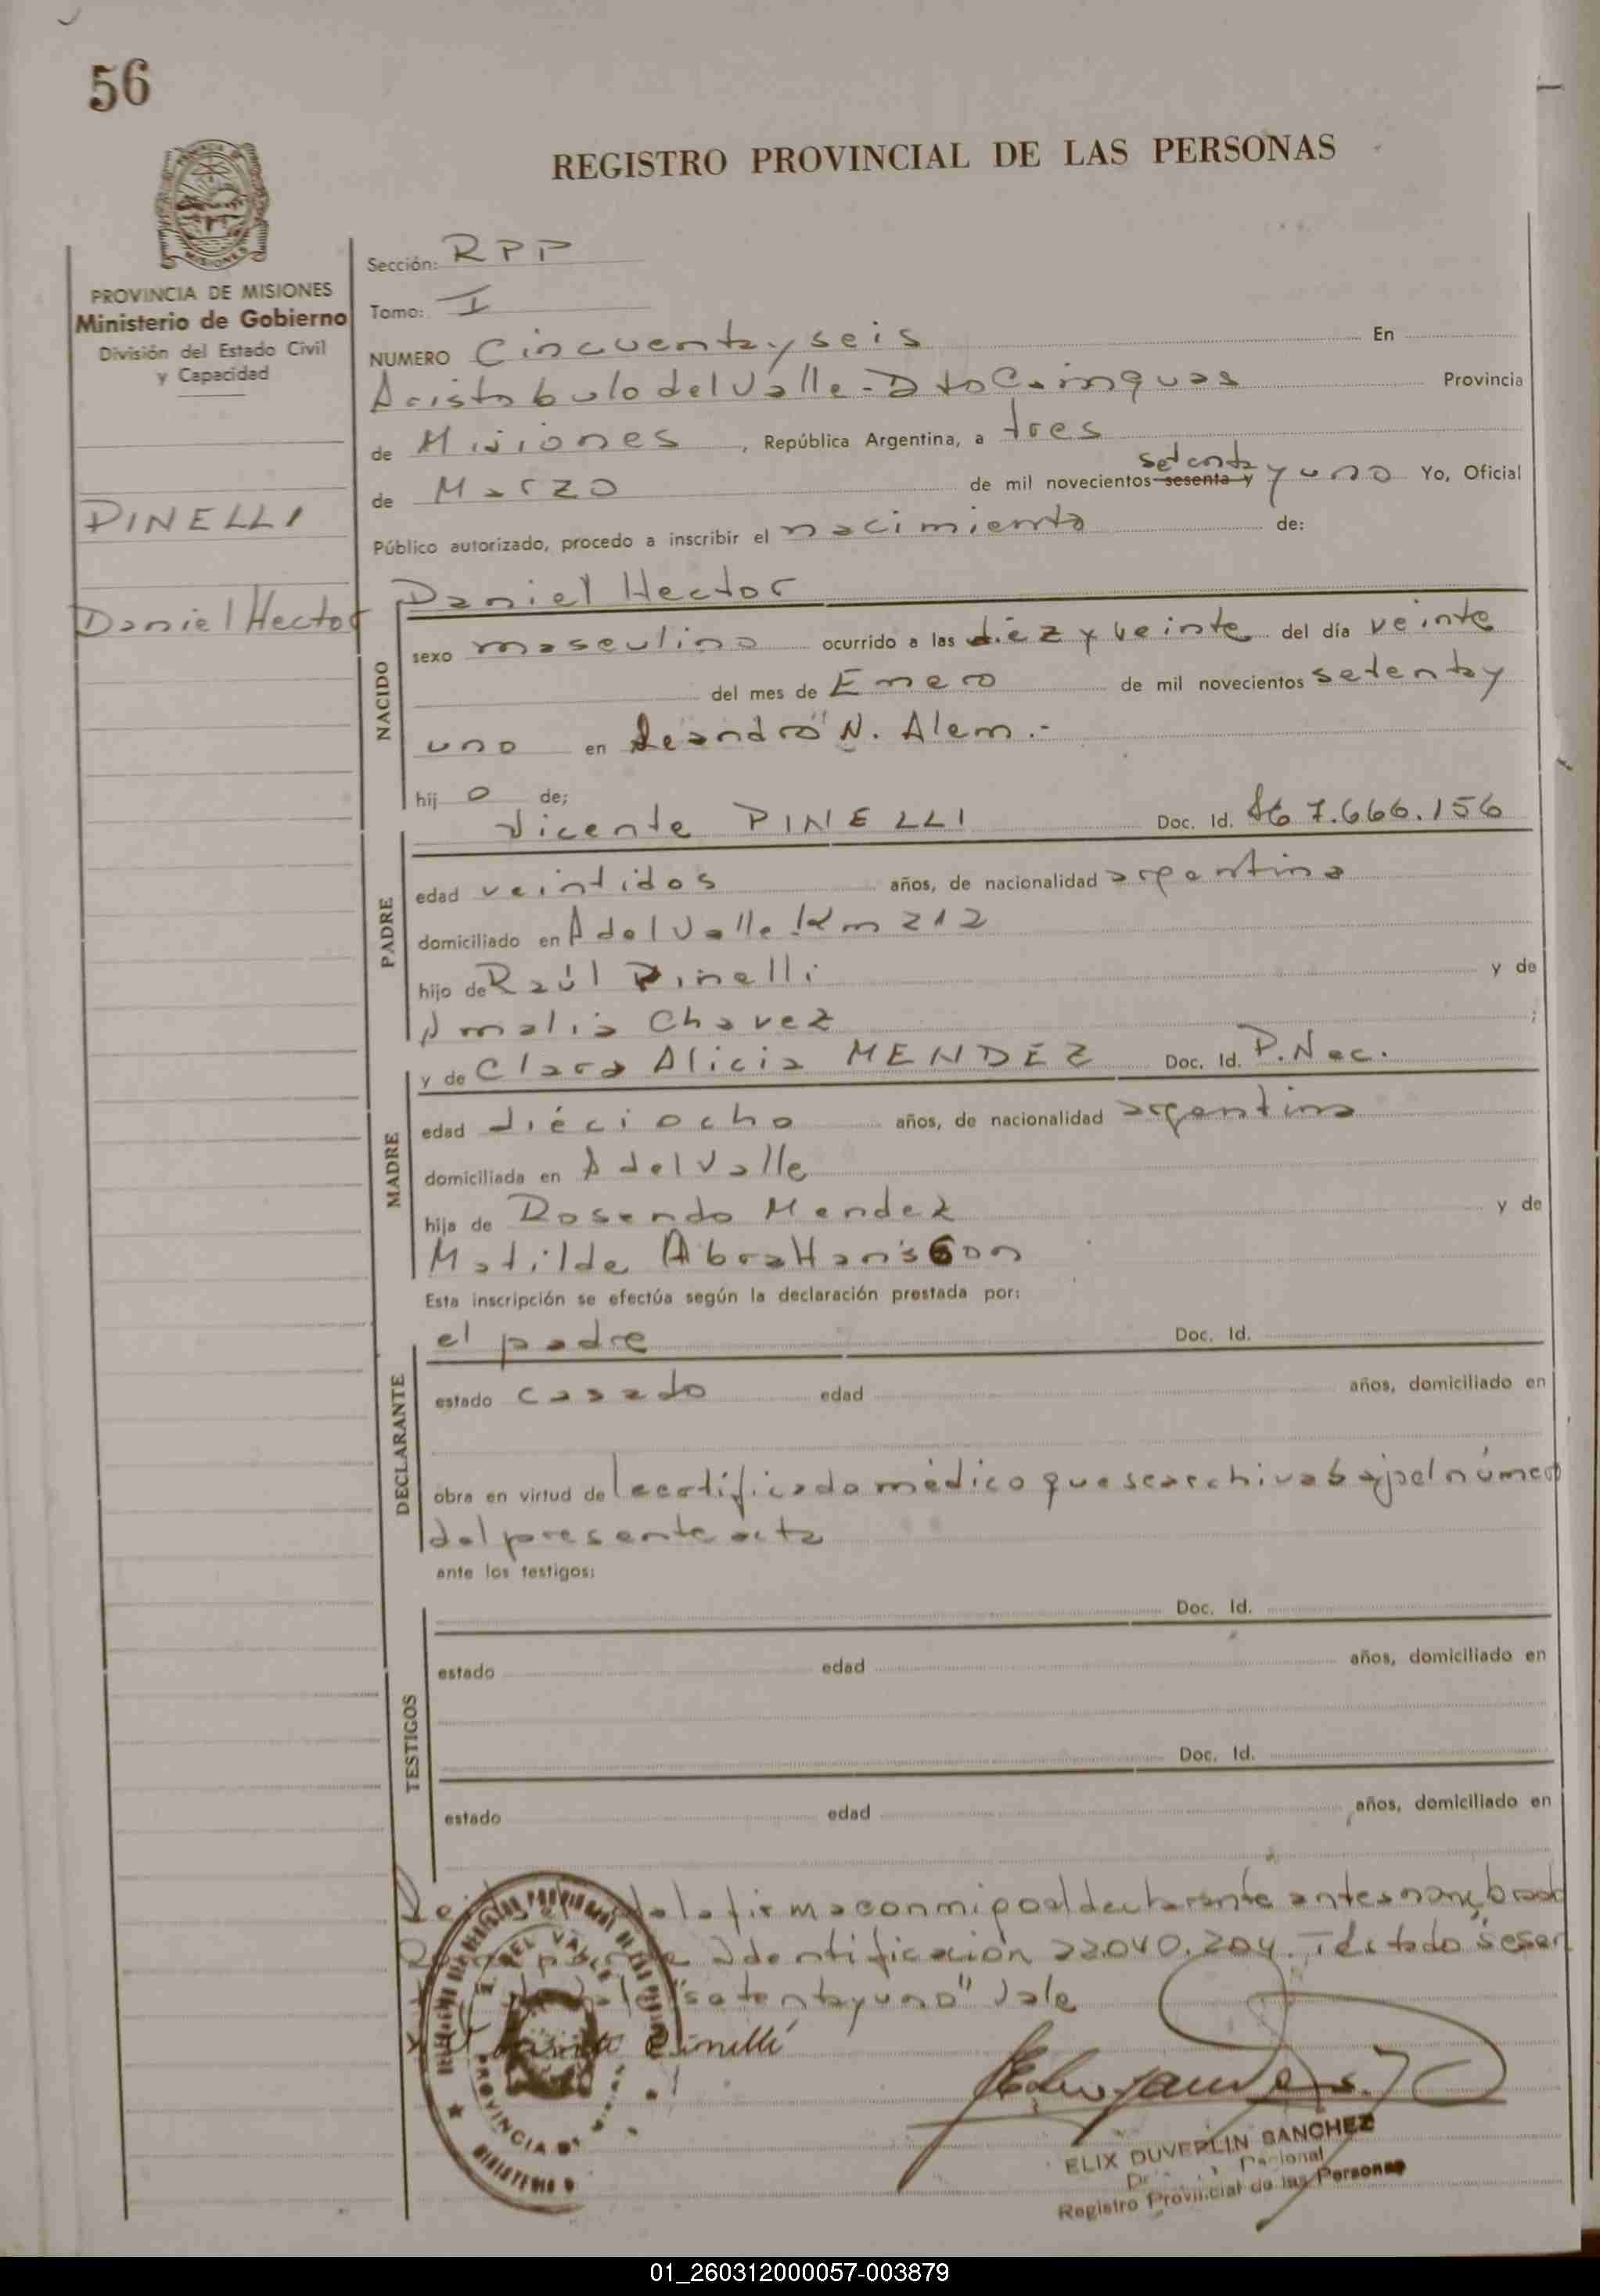 56
REGISTRO PROVINCIAL DE LAS PERSONAS
PROVINCIA DE MISIONES
Ministerio de Gobierno
División del Estado Civil
y Capacidad
PINELLI
Daniel Hector
Sección: RPP
Tomo: I
NUMERO Cincuenta y seis En
Aristobulo del Valle - Dto Cainguas Provincia
de Misiones, República Argentina, a tres
de Marzo de mil novecientos sesenta y setenta y uno Yo, Oficial
Público autorizado, procedo a inscribir el nacimiento de:
Daniel Hector
NACIDO
sexo masculino ocurrido a las diéz y veinte del día veinte
del mes de Enero de mil novecientos setenta y
uno en Leandro N. Alem.-
hij o de;
Vicente PINELLI Doc. Id. 7.666.156
PADRE
edad veintidos años, de nacionalidad argentina
domiciliado en A del Valle Km 212
hijo de Raúl Pinelli y de
Amalia Chavez ;
y de Clara Alicia MENDEZ Doc. Id. P. Nec.
MADRE
edad diéciocho años, de nacionalidad argentina
domiciliada en A del Valle
hija de Rosendo Mendez y de
Matilde AbraHanson
Esta inscripción se efectúa según la declaración prestada por:
el padre Doc. Id.
DECLARANTE
estado casado edad años, domiciliado en
obra en virtud de l certificado médico que se archiva bajo el número
del presente acta
ante los testigos:
Doc. Id.
TESTIGOS
estado edad años, domiciliado en
Doc. Id.
estado edad años, domiciliado en
la firma conmigo el declarante antes nombrado
Identificación 22.040.204. Testado "sesen
"setenta y uno" Vale
Pinelli
A. DEL VALLE
PROVINCIA DE
MINISTERIO D
ELIX DUVERLIN SANCHEZ
Registro Provincial de las Personas
01_260312000057-003879